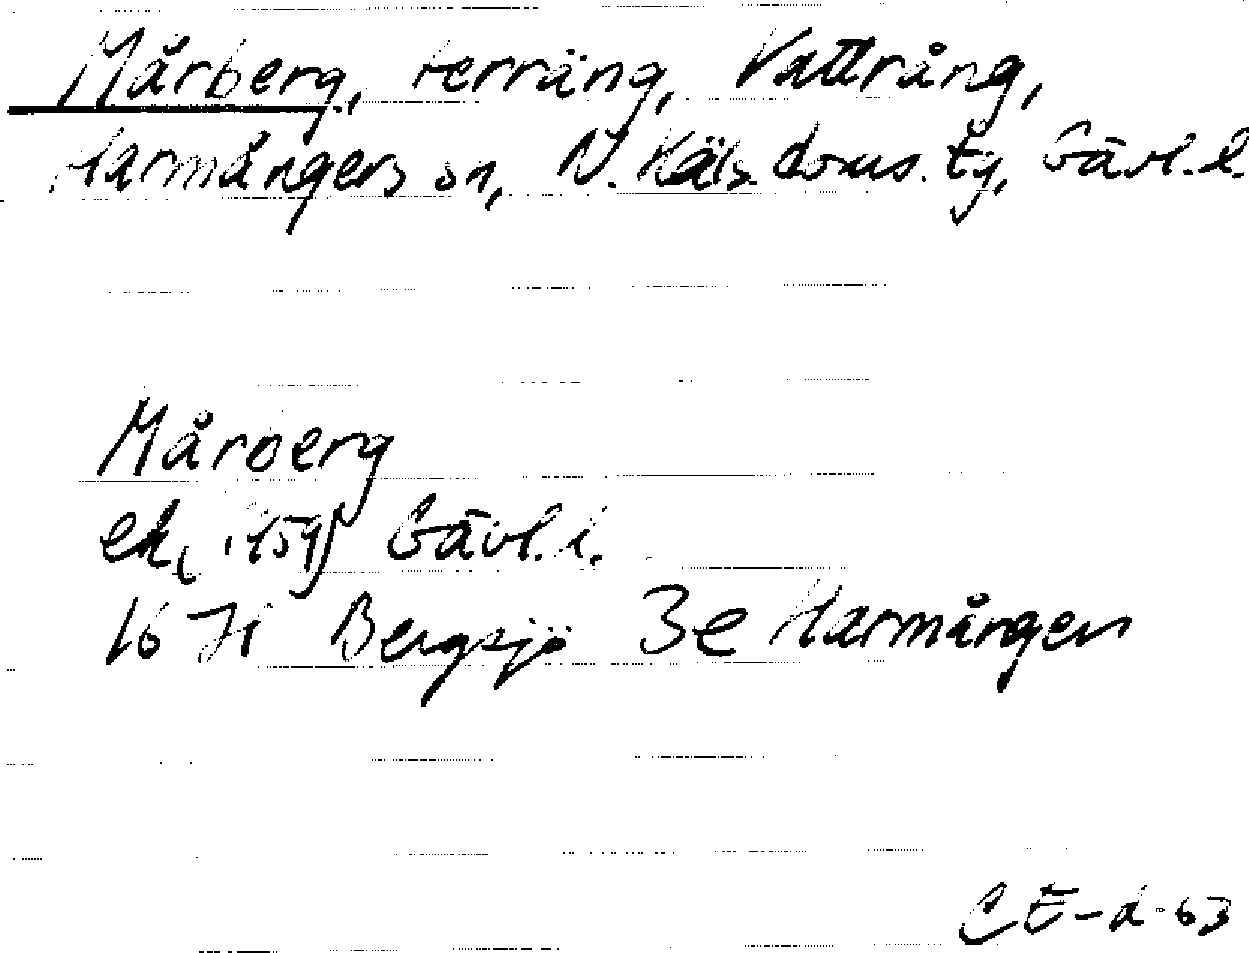 Mårberg, terräng, Vattrång,
Harmångers sn, N. Häls. doms. tg, Gävl. l.
Mårberg
ek (1959) Gävl. l.
16 H Bergsjö 3e Harmånger